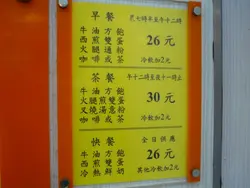 早餐
晨七時半至午十二時
牛油方飽
西煎雙蛋
火腿通粉
咖啡或茶
26元
冷飲加2元
茶餐
午十二時至後十一時止
牛油方飽
西煎雙蛋
叉燒湯意粉
咖啡或茶
30元
冷飲加2元
快餐
全日供應
牛油方飽
西煎雙蛋
冷熱鮮奶
26元
其他冷飲加2元